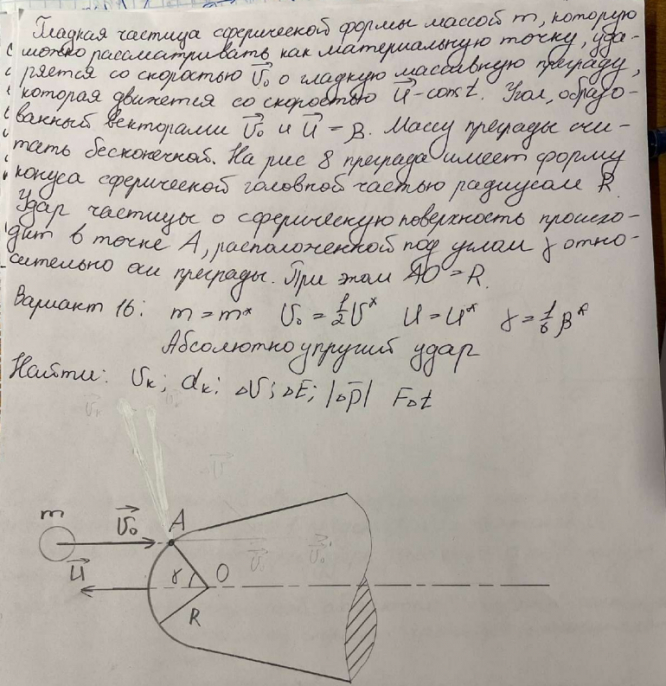 Гладкая частица сферической формы массой m, которую
можно рассматривать как материальную точку, уда-
ряется со скоростью V₀ о гладкую массивную преграду,
которая движется со скоростью U-const. Угол, образо-
ванный векторами V₀ и U - β. Массу преграды счи-
тать бесконечной. На рис 8 преграда имеет форму
конуса сферической головной частью радиусом R.
Удар частицы о сферическую поверхность происхо-
дит в точке A, расположенной под углом γ отно-
сительно оси преграды. При этом AO = R.
Вариант 16: m = m* V₀ = 1/2 V* U = U* γ = 1/6 β*
Абсолютно упругий удар
Найти: Vк; αк; ΔV; ΔE; |Δp| FΔt
m V₀ A
U γ O
R